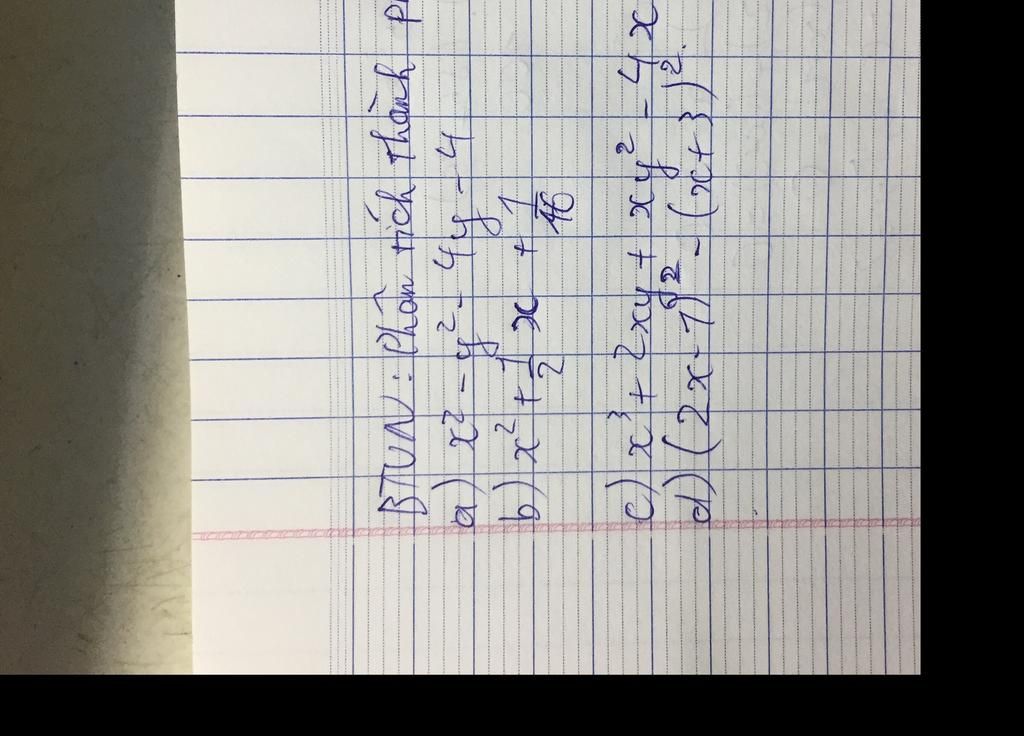 BTVN: Phân tích thành
a) x² - y² - 4y - 4
b) x² + 1/2 x + 1/16
c) x³ + 2xy + xy² - 4x
d) (2x - 1)² - (x + 3)².